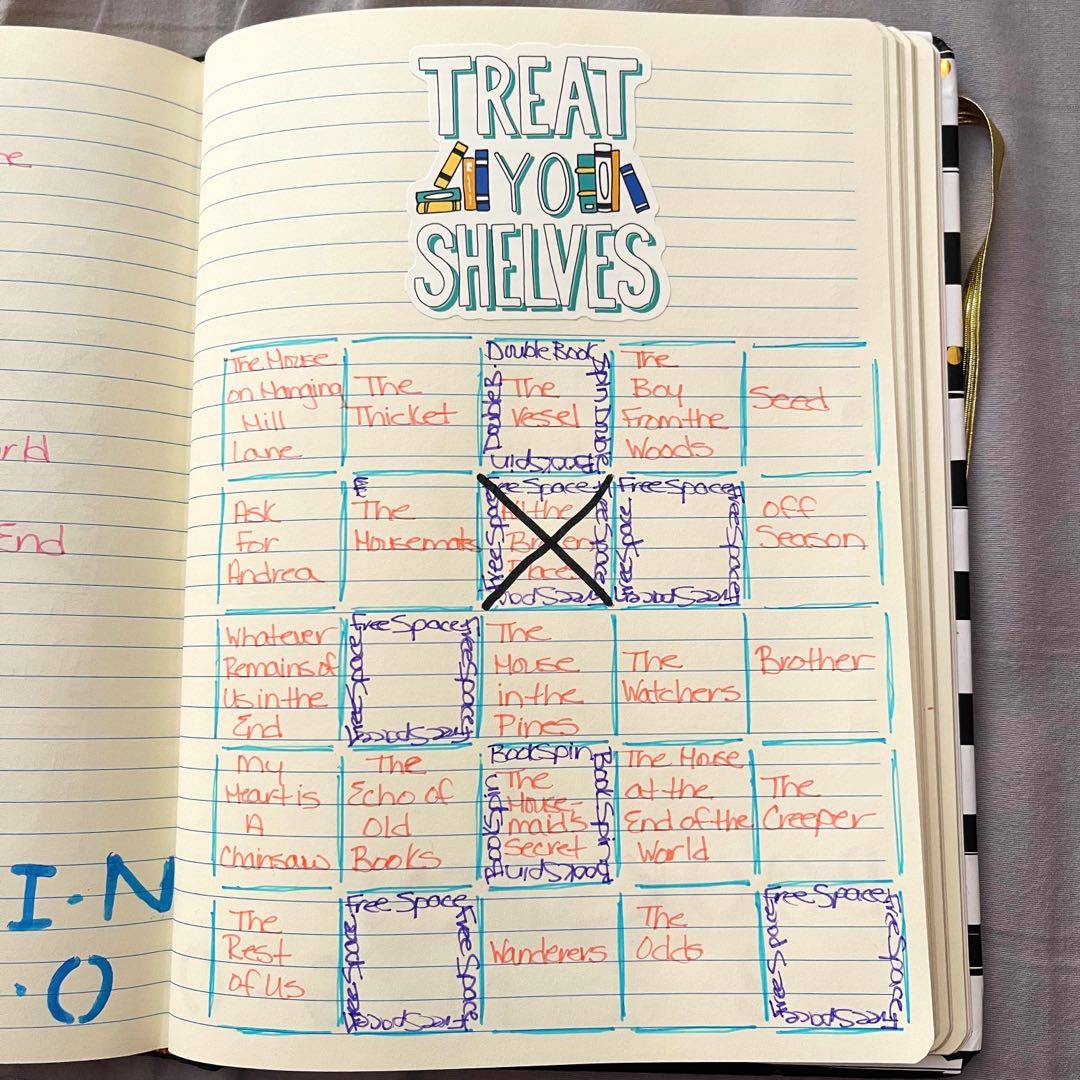 TREAT
YO
SHELVES
The House
on Hanging
Hill
Lane
The
Thicket
Double Book
Spin Double
BookSpin
Double B.
The
Vessel
The
Boy
From the
Woods
Seed
Ask
For
Andrea
The
Housemates
Free Space
Free Space
Free Space
Free Space
All the
Broken
Places
Free Space
Free Space
Free Space
Free Space
Off
Season
Whatever
Remains of
Us in the
End
Free Space
Free Space
Free Space
Free Space
The
House
in the
Pines
The
Watchers
Brother
My
Heart is
A
Chainsaw
The
Echo of
Old
Books
BookSpin
BookSpin
BookSpin
BookSpin
The
House-
maid's
Secret
The House
at the
End of the
World
The
Creeper
The
Rest
of Us
Free Space
Free Space
Free Space
Free Space
Wanderers
The
Odds
Free Space
Free Space
Free Space
Free Space
rld
End
I.N
.O